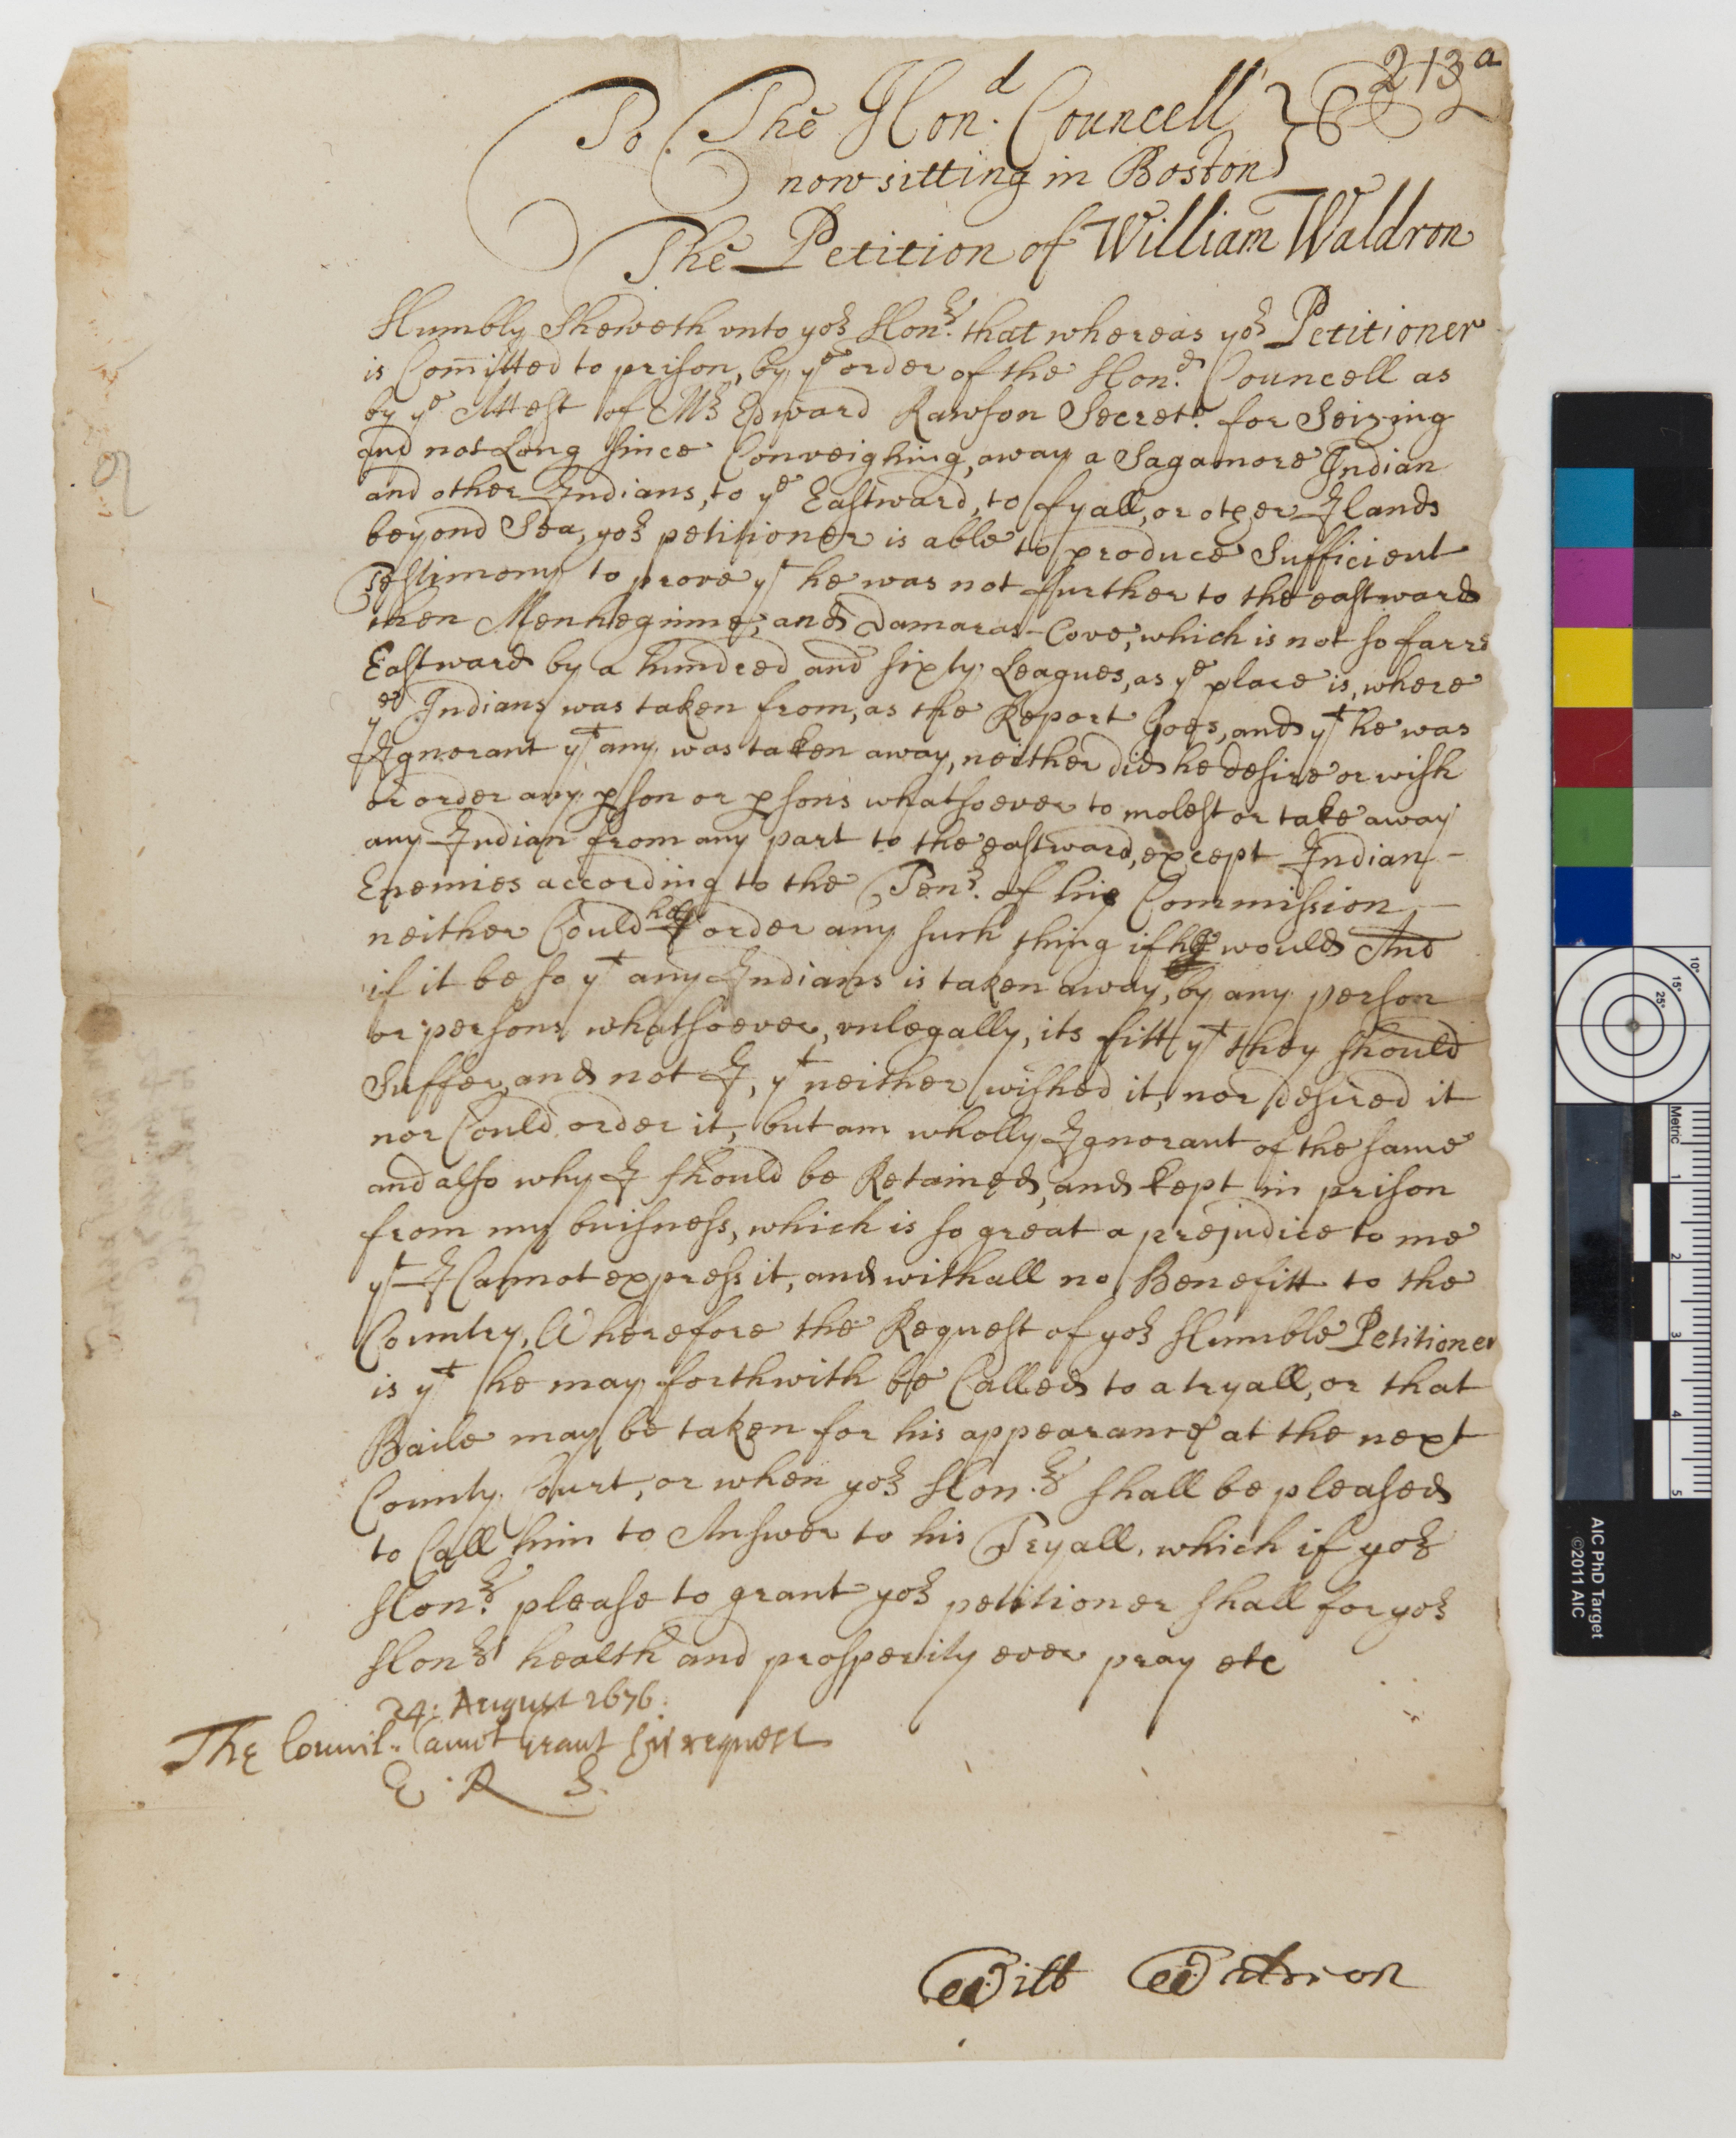 213a
To The Hon.d Councell
now sitting in Boston
The Petition of William Waldron
Humbly Sheweth vnto yor Honrs. that whereas yor Petitioner
is Com̄itted to prison, by ye order of the Hon.d Councell as
by ye Attest of Mr Edward Rawson Secret.e for Seizing
and not Long Since Conveighing, away a Sagamore Indian
and other Indians, to ye Eastward, to fyall, or other Ilands
beyond Sea, yor petitioner is able to produce Sufficient
Testimony to prove yt he was not further to the eastward
then Menheginne, and Damaras-Cove, which is not so farre
Eastward by a hundred and sixty Leagues, as ye place is, where
ye Indians was taken from, as the Report Goes, and yt he was
Ignorant yt any was taken away, neither did he desire or wish
or order any pson or psons whatsoever to molest or take away
any Indian from any part to the eastward, except Indian-
Enemies according to the Tenr. of his Commission -
neither Could he order any such thing if he would And
if it be so yt any Indians is taken away, by any person
or persons whatsoever, vnlegally, its fitt yt they should
Suffer, and not I, yt neither wished it, nor desired it
nor Could order it, but am wholly Ignorant of the same
and also why I should be Retained, and kept in prison
from my buisness, which is so great a prejudice to me
yt I Cannot express it, and withall no Benefitt to the
Country, Wherefore the Request of yor Humble Petitioner
is yt he may forthwith be Called to a tryall, or that
Baile may be taken for his appearance at the next
County Court, or when yor Hon.rs shall be pleased
to Call him to Answer to his Tryall, which if yor
Honrs. please to grant yor petitioner shall for yor
Honrs health and prosperity ever pray etc
24: August 1676:
The Councill Cannot grant his request
E. R S.
Will Waldron
AIC PhD Target
©2011 AIC
Metric
1
2
3
4
5
10°
15°
25°